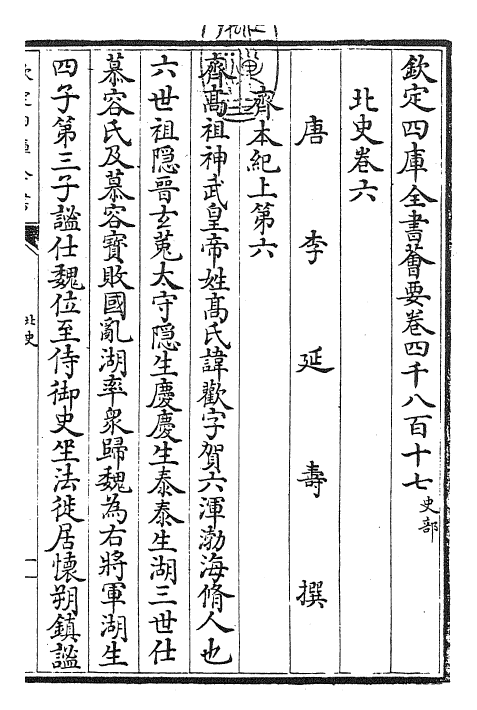 欽定四庫全書薈要卷四千八百十七史部
北史卷六
唐李延壽撰
齊本紀上第六
齊髙祖神武皇帝姓髙氏諱歡字賀六渾渤海脩人也
六世祖隠晉玄菟太守隠生慶慶生泰泰生湖三世仕
慕容氏及慕容寳敗國亂湖率衆歸魏為右將軍湖生
四子第三子謐仕魏位至侍御史坐法徙居懐朔鎮謐
北史
一